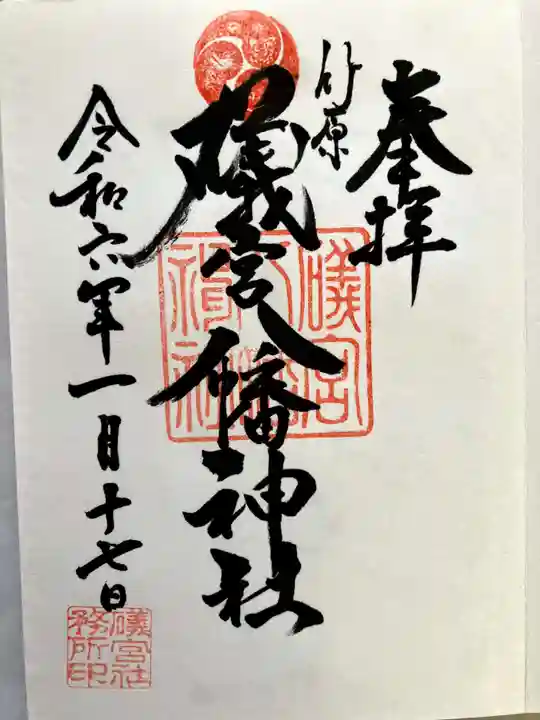 奉拝
竹原
礒宮八幡神社
令和六年一月十七日
礒宮社
務所印